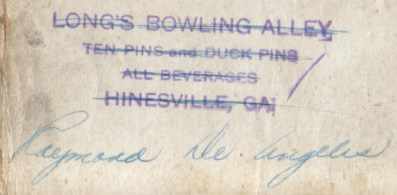 LONG'S BOWLING ALLEY
TEN PINS and DUCK PINS
ALL BEVERAGES
HINESVILLE, GA.
Raymond De Angelis